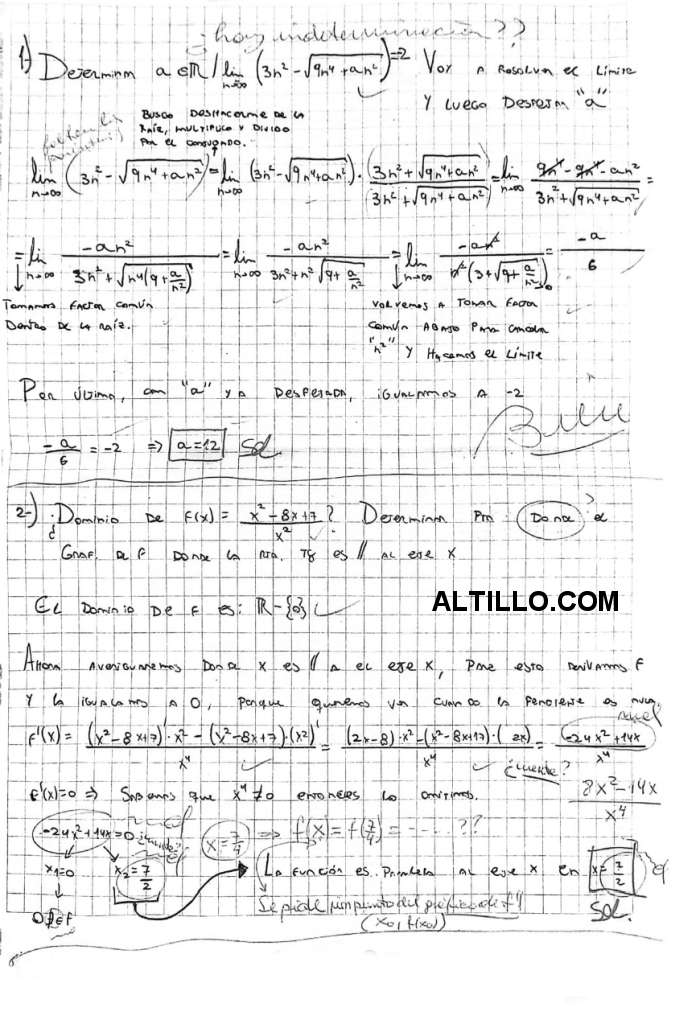 ¿hay indeterminación??
1-) Determinar a ∈ ℝ / lim n→∞ (3n² - √(9n⁴ + an²)) = -2 Voy a resolver el límite
y luego despejar "a"
Busco deshacerme de la
raíz, multiplico y divido
por el conjugado.
lim n→∞ (3n² - √(9n⁴ + an²)) = lim n→∞ (3n² - √(9n⁴ + an²)) · (3n² + √(9n⁴ + an²))/(3n² + √(9n⁴ + an²)) = lim n→∞ (9n⁴ - 9n⁴ - an²)/(3n² + √(9n⁴ + an²)) =
= lim n→∞ -an²/(3n² + √(n⁴(9 + a/n²))) = lim n→∞ -an²/(3n² + n²√(9 + a/n²)) = lim n→∞ -an²/(n²(3 + √(9 + a/n²))) = -a/6
Tomamos factor común
dentro de la raíz.
Volvemos a tomar factor
común abajo para cancelar
"n²" y hacemos el límite
Por último, con "a" ya despejada, igualamos a -2
-a/6 = -2 ⇒ a = 12 Sol.
Bien
2-) ¿Dominio de f(x) = (x² - 8x + 7)/x²? Determinar Pto: Donde el
Graf. de f donde la rta. Tg es // al eje x
El Dominio de f es: ℝ - {0}
ALTILLO.COM
Ahora averiguaremos donde x es // a el eje x, para esto derivamos f
y la igualamos a 0, porque queremos ver cuando la pendiente es nula.
f'(x) = ((x² - 8x + 7)' · x² - (x² - 8x + 7) · (x²)')/x⁴ = ((2x - 8) · x² - (x² - 8x + 7) · (2x))/x⁴ = (-24x² + 14x)/x⁴
¿cuenta?
(8x² - 14x)/x⁴
f'(x) = 0 ⇒ Sabemos que x⁴ ≠ 0 entonces lo omitimos.
-24x² + 14x = 0 ¿cuenta? x = 7/4 ⇒ f(x) = f(7/4) = -----??
x₁ = 0 x₂ = 7/2 La función es paralela al eje x en x = 7/2
0 ∉ f Sol.
Se pide un punto del gráfico de f
(x₀, f(x₀))